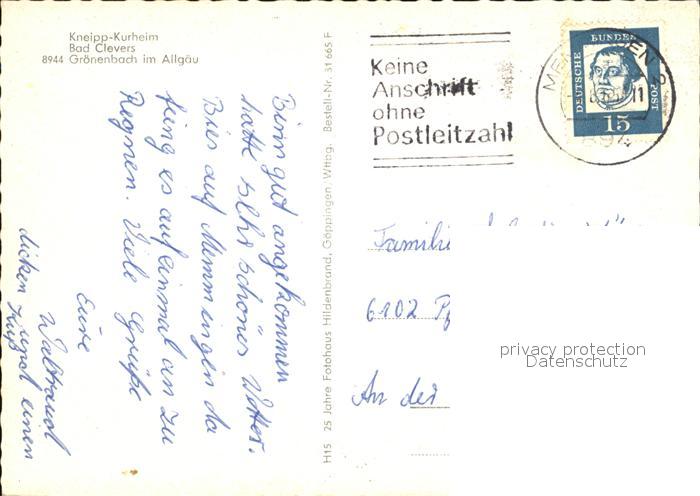 Kneipp-Kurheim
Bad Clevers
8944 Grönenbach im Allgäu
Keine
Anschrift
ohne
Postleitzahl
DEUTSCHE BUNDESPOST
15
894
Binn gut angekommen
hatte sehr schönes Wetter.
Bies auf Memmingen da
fing es auf einmal an zu
Regnen. Viele Grüße
Eure
Waltraud
und einen
dicken Kuß
H15 25 Jahre Fotohaus Hildenbrand, Göppingen/Wttbg. Bestell-Nr. 31 665 F
Familie
6102
An der
privacy protection
Datenschutz